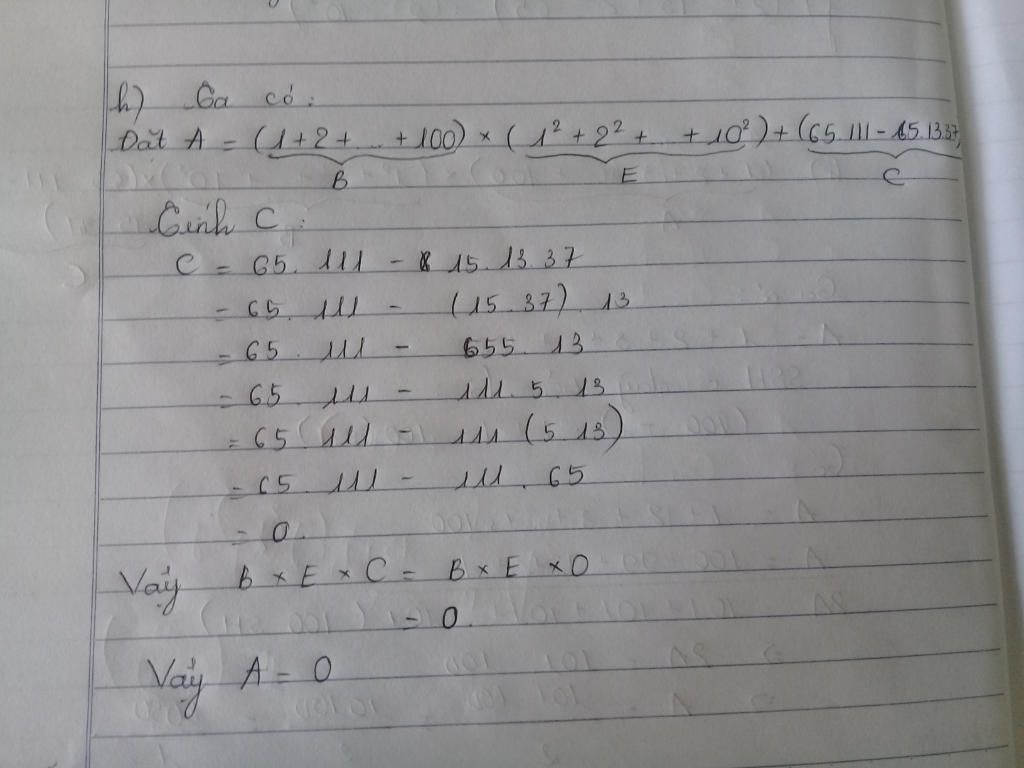 h) Ta có:
Đặt A = (1+2+...+100) × (1² + 2² + ... + 10²) + (65.111 - 15.13.37)
B E C
Tính C:
C = 65. 111 - 15. 13. 37
= 65. 111 - (15.37). 13
= 65. 111 - 555. 13
= 65. 111 - 111. 5. 13
= 65. 111 - 111 (5.13)
= 65. 111 - 111. 65
= 0.
Vậy B × E × C = B × E × 0
= 0.
Vậy A = 0